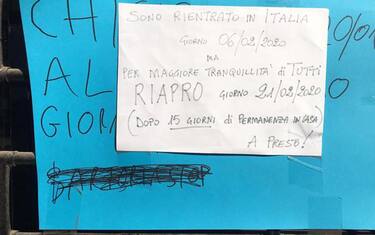 SONO RIENTRATO IN ITALIA
GIORNO 06/02/2020
MA
PER MAGGIORE TRANQUILLITÀ di TUTTI
RIAPRO GIORNO 21/02/2020
(DOPO 15 GIORNI di PERMANENZA IN CASA)
A PRESTO!
AL
GIOR